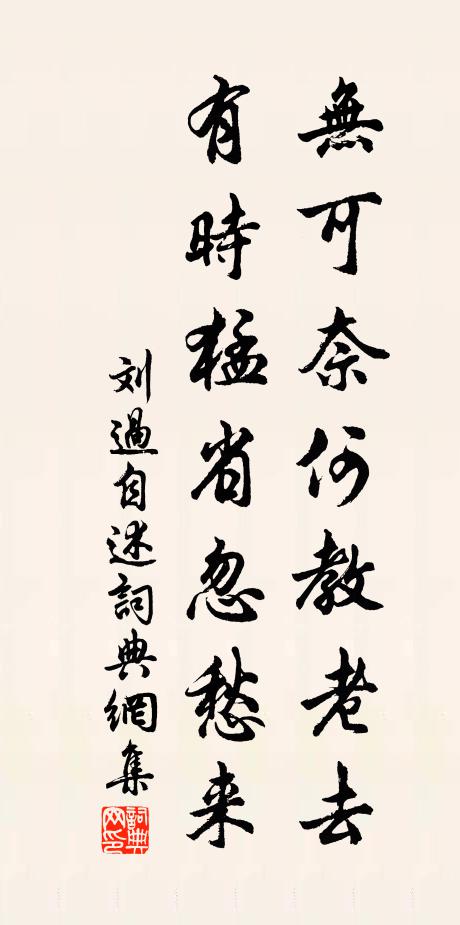 無可奈何教老去
有時猛省忽愁来
刘過自述詞典網集
詞典網印